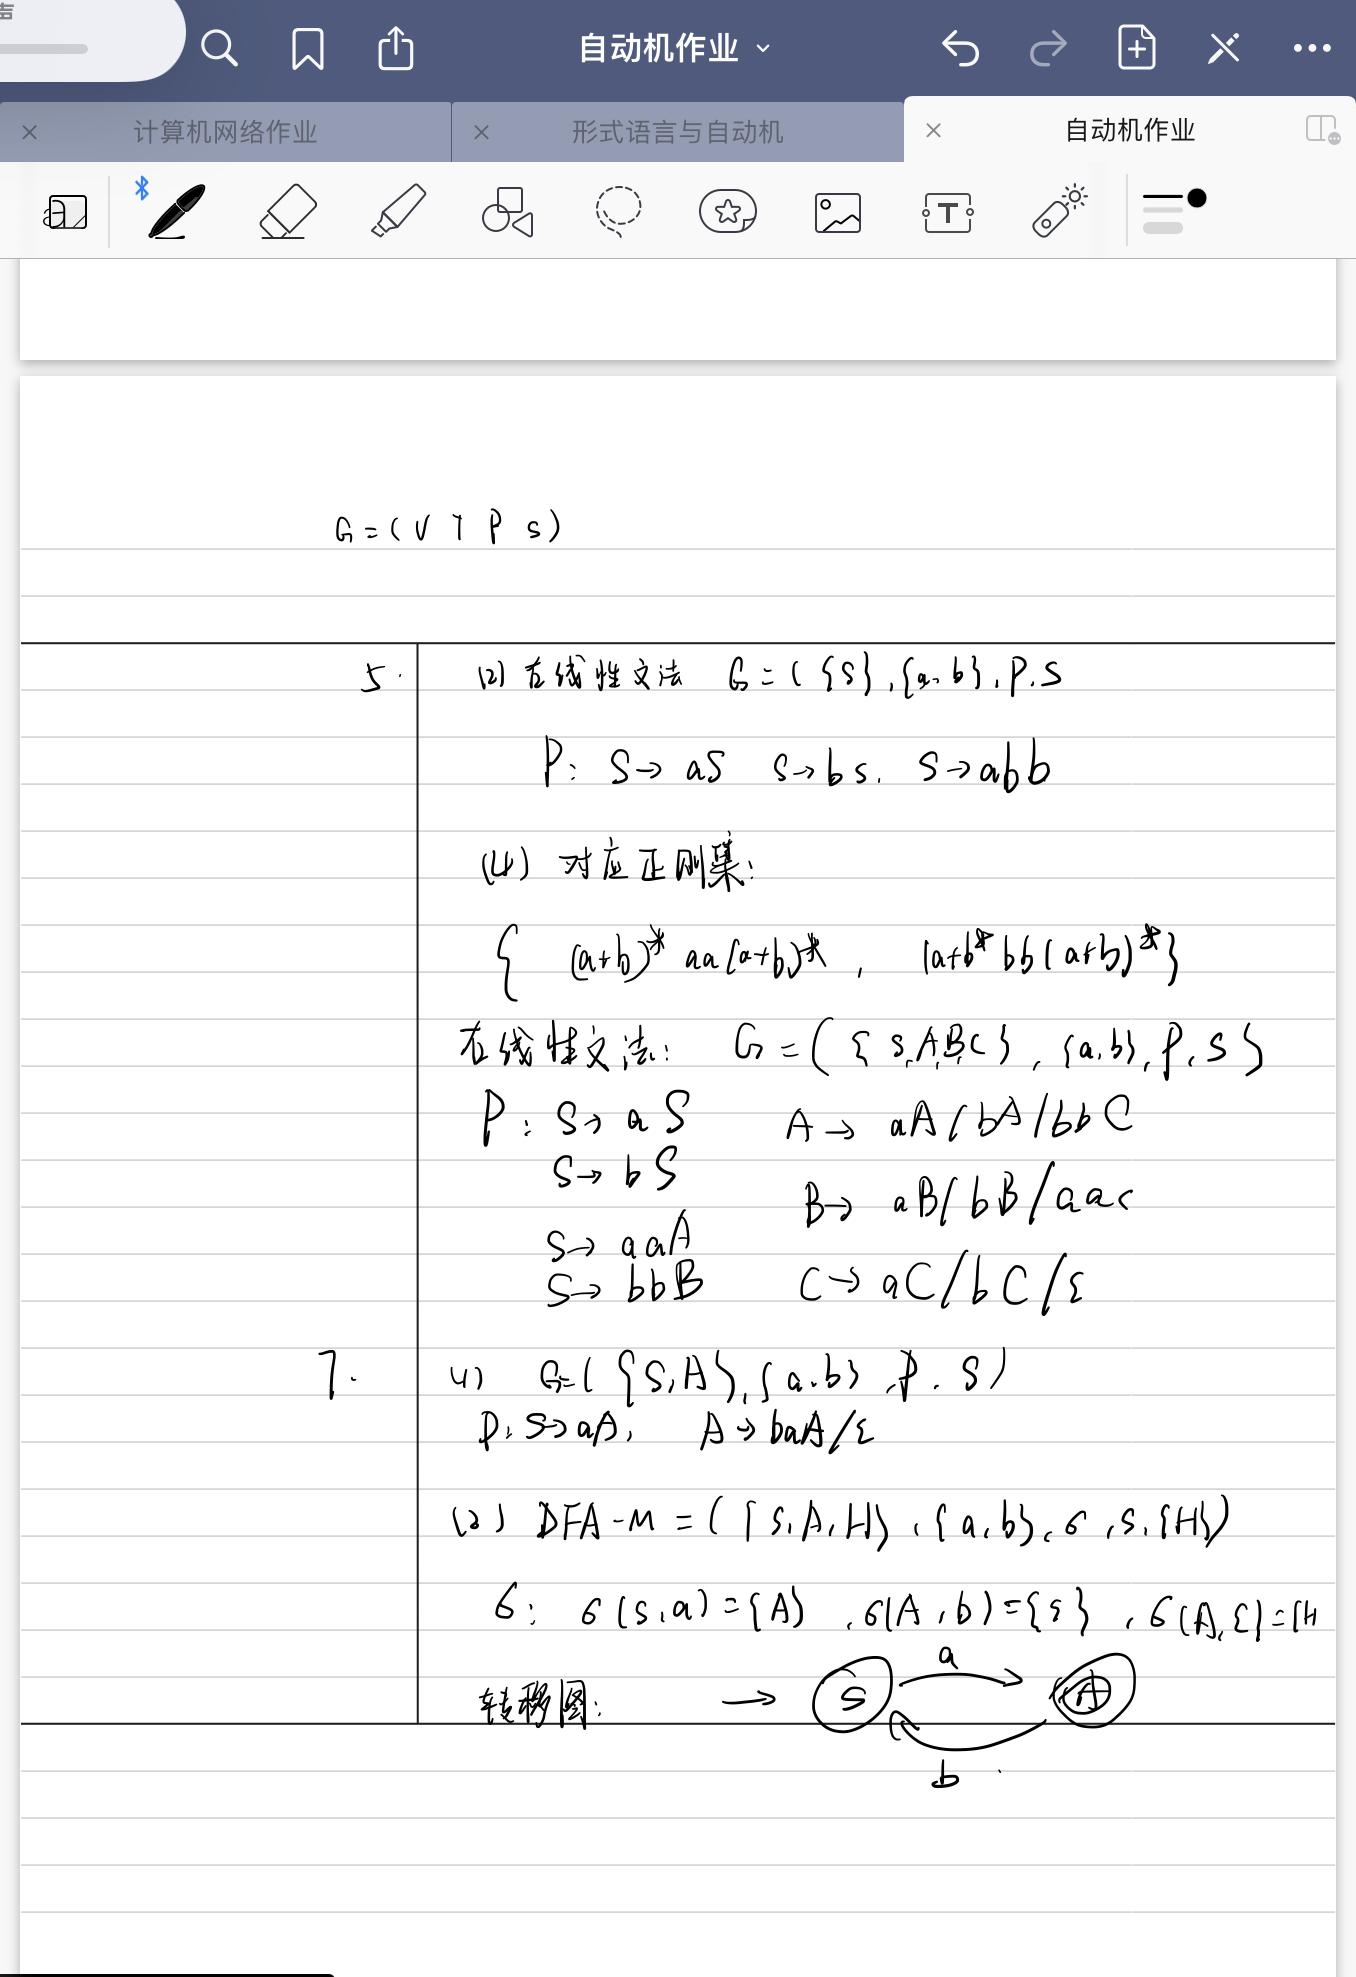 声
自动机作业
计算机网络作业
形式语言与自动机
自动机作业
G=(V T P S)
5. (2) 右线性文法 G=({S},{a,b},P,S
P: S→aS S→bS, S→abb
(4) 对应正则集:
{ (a+b)* aa(a+b)*, (a+b* bb(a+b)*}
右线性文法: G=({S,A,B,C},{a,b},P,S)
P: S→aS A→aA/bA/bbC
S→bS B→aB/bB/aac
S→aaA
S→bbB C→aC/bC/ε
7. (1) G=({S,A},{a,b},P,S)
P: S→aA, A→baA/ε
(2) DFA-M=({S,A,H},{a,b},σ,S,{H})
σ: σ(S,a)={A},σ(A,b)={S},σ(A,ε)={H
转移图: → S a A
b